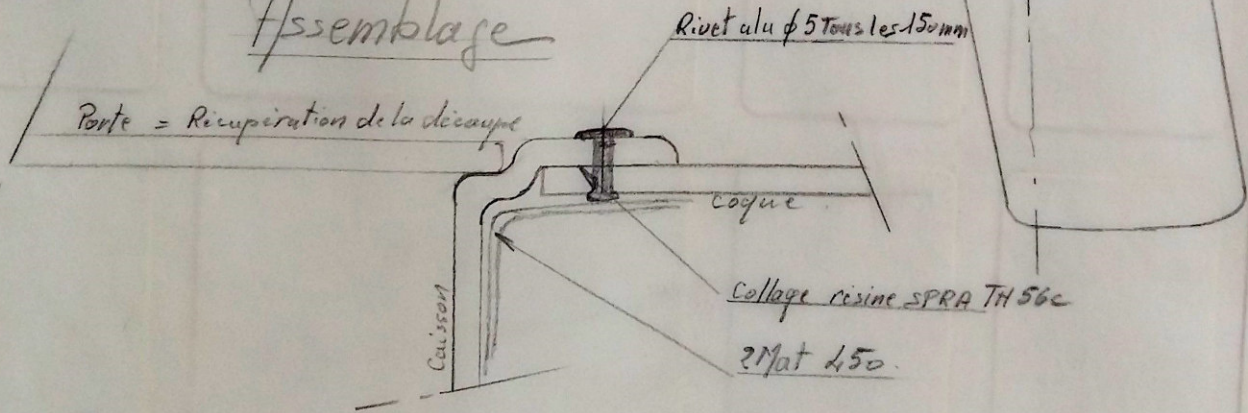 Assemblage
Rivet alu ϕ 5 Tous les 150mm
Porte = Récupération de la découpe
coque
Caisson
Collage résine SPRA TH 56c
2Mat 450.